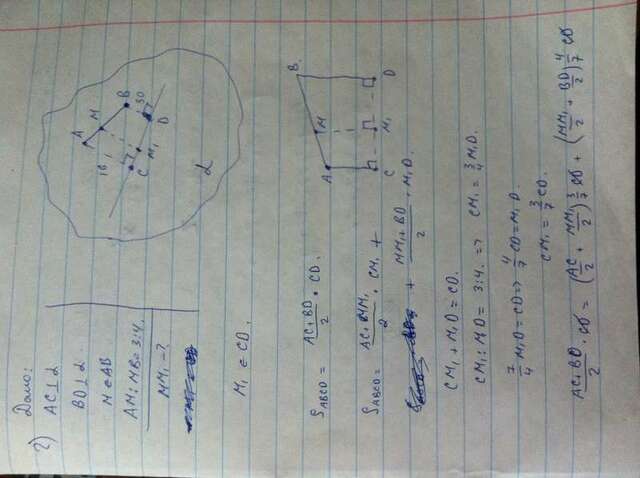 2) Дано:
AC⊥α
BD⊥α
M∈AB
AM:MB=3:4.
MM₁ - ?
A
M
18
B
C
M₁
30
D
α
M₁ ∈ CD.
S_ABCD = (AC+BD)/2 · CD.
S_ABCD = (AC+MM₁)/2 · CM₁ +
+ (MM₁+BD)/2 · M₁D.
A
M
B.
C
M₁
D
CM₁ + M₁D = CD.
CM₁ : MD = 3:4. => CM₁ = 3/4 M₁D.
7/4 M₁D = CD => 4/7 CD = M₁D.
CM₁ = 3/7 CD.
(AC+BD)/2 · CD = (AC/2 + MM₁/2) 3/7 CD + (MM₁/2 + BD/2) 4/7 CD